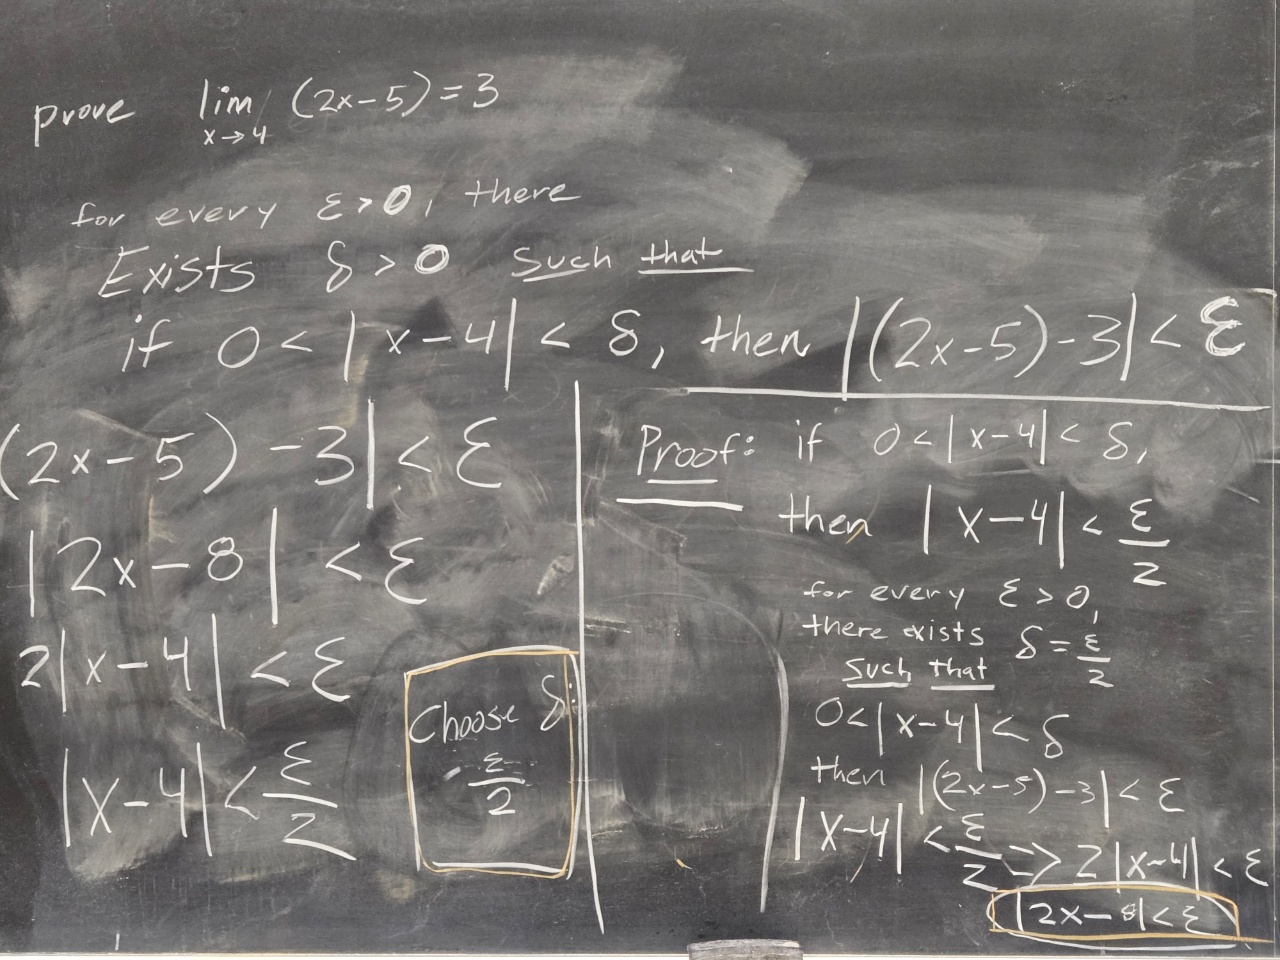 prove lim (2x-5) = 3
x→4
for every ε>0, there
Exists δ > 0 such that
if 0 < |x-4| < δ, then |(2x-5)-3| < ε
(2x-5) -3| < ε
|2x-8| < ε
2|x-4| < ε
|x-4| < ε/2
Choose δ:
ε/2
Proof: if 0<|x-4| < δ,
then |x-4| < ε/2
for every ε > 0,
there exists δ = ε/2
such that
0<|x-4|< δ
then |(2x-5)-3| < ε
|x-4| < ε/2 => 2|x-4| < ε
|2x-8| < ε